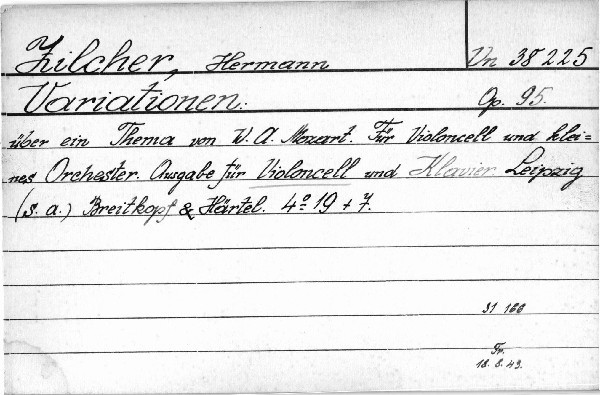 Zilcher, Hermann Vn 38225
Variationen: Op. 95.
über ein Thema von W. A. Mozart. Für Violoncell und klei=
nes Orchester. Ausgabe für Violoncell und Klavier. Leipzig
(s. a.) Breitkopf & Härtel. 4º 19 + 7.
31 166
Fr.
18. 8. 43.